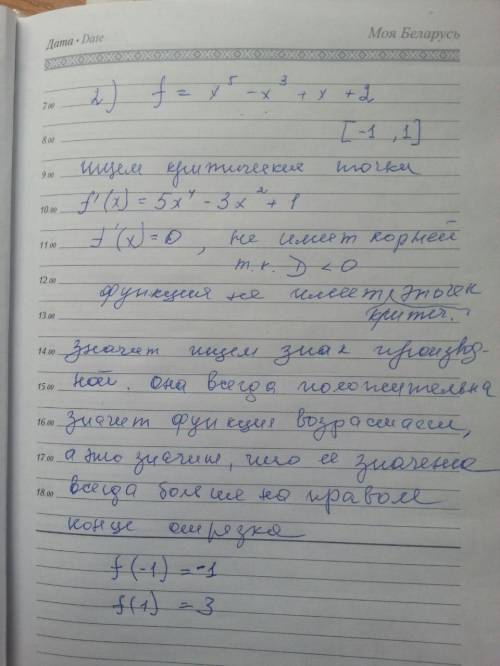 Дата · Date
Моя Беларусь
7.00 2) f = x⁵ - x³ + x + 2
8.00 [-1 , 1]
9.00 ищем критические точки
10.00 f'(x) = 5x⁴ - 3x² + 1
11.00 f'(x) = 0 , не имеет корней
т.к. D < 0
12.00
функция не имеет точек
13.00 критич.
14.00 значит ищем знак производ-
15.00 ной. она всегда положительна
16.00 значит функция возрастает,
17.00 а это значит, что ее значение
18.00 всегда больше на правом
конце отрезка
f(-1) = -1
f(1) = 3